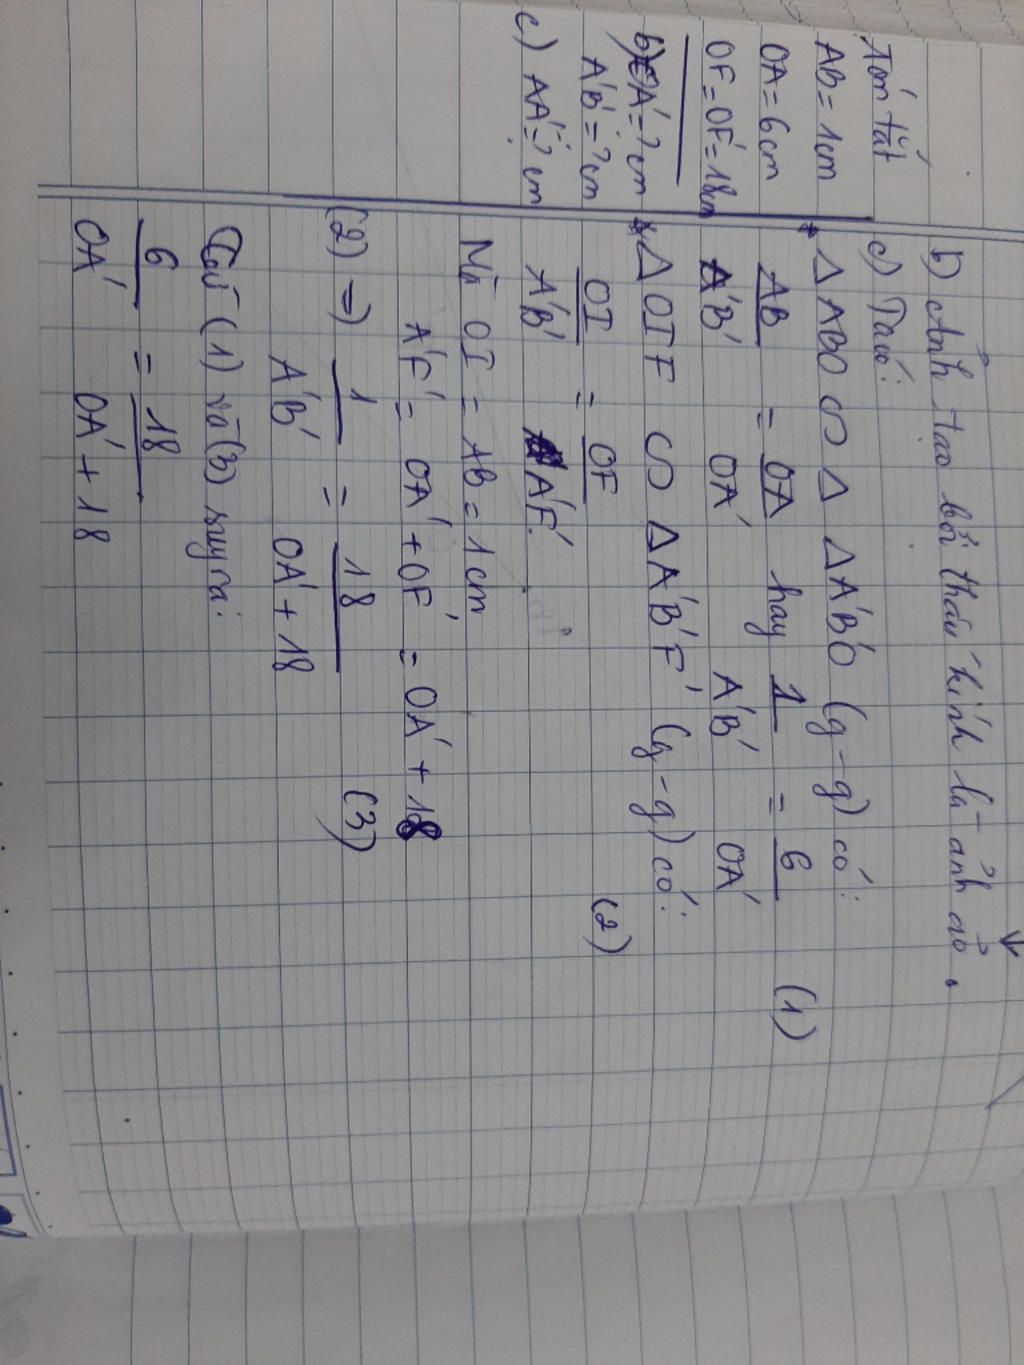 Tóm tắt
AB = 1cm
OA = 6cm
OF = OF' = 18cm
b) OA' = ? cm
A'B' = ? cm
c) AA' = ? cm
b) Ảnh tạo bởi thấu kính là ảnh ảo.
c) Ta có:
* Δ ABO ∽ Δ ΔA'B'O (g-g) có:
AB/A'B' = OA/OA' hay 1/A'B' = 6/OA' (1)
* Δ OIF ∽ ΔA'B'F' (g-g) có:
OI/A'B' = OF/A'F' (2)
Mà OI = AB = 1cm
A'F' = OA' + OF' = OA' + 18
(2) => 1/A'B' = 18/OA' + 18 (3)
Từ (1) và (3) suy ra:
6/OA' = 18/OA' + 18